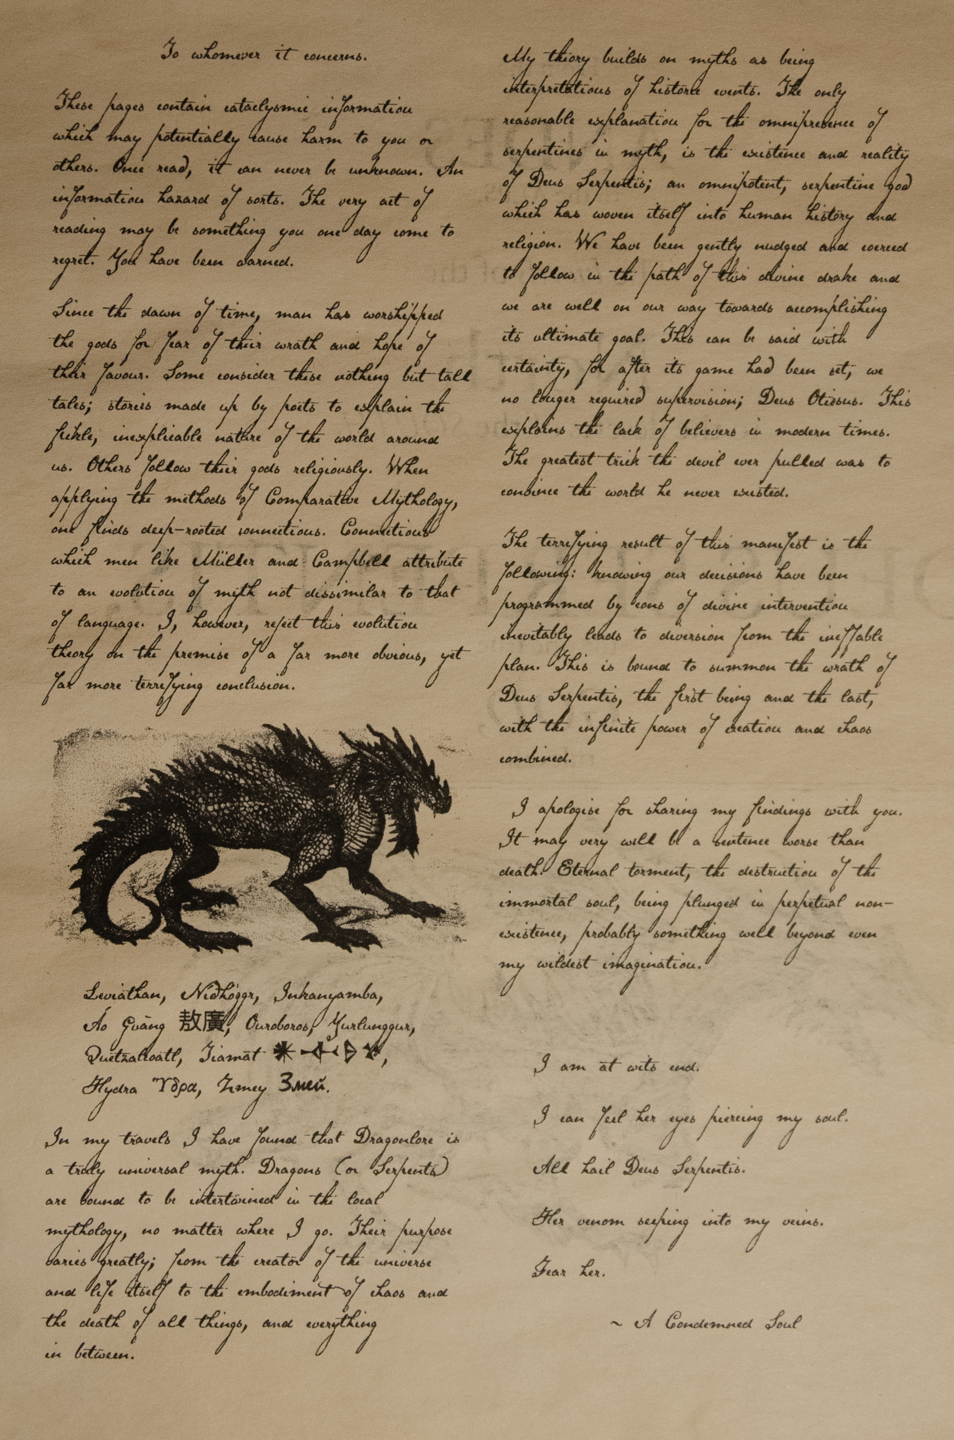 To whomever it concerns.
These pages contain cataclysmic information
which may potentially cause harm to you or
others. Once read, it can never be unknown. An
information hazard of sorts. The very act of
reading may be something you one day come to
regret. You have been warned.
Since the dawn of time, man has worshipped
the gods for fear of their wrath and hope of
their favour. Some consider these nothing but tall
tales; stories made up by poets to explain the
fickle, inexplicable nature of the world around
us. Others follow their gods religiously. When
applying the methods of Comparative Mythology,
one finds deep-rooted connections. Connections
which men like Müller and Campbell attribute
to an evolution of myth not dissimilar to that
of language. I, however, reject this evolution
theory on the premise of a far more obvious, yet
far more terrifying conclusion.
Leviathan, Nidhöggr, Inkanyamba,
Áo Guâng 敖廣, Ouroboros, Yurlunggur,
Quetzalcoatl, Tiamat
Hydra Ὕδρα, Zmey Змей.
In my travels I have found that Dragonlore is
a truly universal myth. Dragons (or Serpents)
are bound to be intertwined in the local
mythology, no matter where I go. Their purpose
varies greatly; from the creator of the universe
and life itself to the embodiment of chaos and
the death of all things, and everything
in between.
My theory builds on myths as being
interpretations of historic events. The only
reasonable explanation for the omnipresence of
serpentines in myth, is the existence and reality
of Deus Serpentis; an omnipotent, serpentine god
which has woven itself into human history and
religion. We have been gently nudged and coerced
to follow in the path of this divine drake and
we are well on our way towards accomplishing
its ultimate goal. This can be said with
certainty, for after its game had been set, we
no longer required supervision; Deus Otiosus. This
explains the lack of believers in modern times.
The greatest trick the devil ever pulled was to
convince the world he never existed.
The terrifying result of this manifest is the
following: knowing our decisions have been
programmed by eons of divine intervention
inevitably leads to diversion from the ineffable
plan. This is bound to summon the wrath of
Deus Serpentis, the first being and the last,
with the infinite power of creation and chaos
combined.
I apologise for sharing my findings with you.
It may very well be a sentence worse than
death. Eternal torment, the destruction of the
immortal soul, being plunged in perpetual non-
existence, probably something well beyond even
my wildest imagination.
I am at wits end.
I can feel her eyes piercing my soul.
All hail Deus Serpentis.
Her venom seeping into my veins.
Fear her.
~ A Condemned Soul